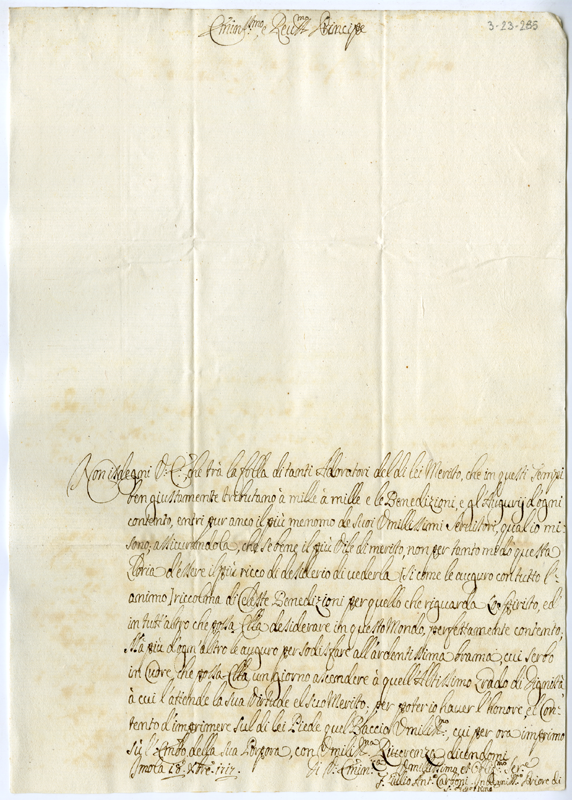 Emin.mo, e Reu.mo Principe
3-23-265
Non isdegni V.ra E. che trà la folla di tanti Adoratori del di lei Merito, che in questi Tempi
ben giustamente tributano à mille à mille e le Benedizioni, e gl'Augurij d'ogni
contento, entri pur anco il più menomo de suoi Umilissimi Servitori, qual io mi
sono, assicurandola, che se bene il più Vile di merito, non per tanto medo questa
Gloria d'essere il più ricco di desiderio di vederla (si come le auguro con tutto l'
animo) ricolma di Celeste Benedizioni per quello che riguarda lo spirito, ed
in tutt'altro che possa Ella desiderare in questo Mondo, perfettamente contento;
Ma più d'ogn'altro le auguro per sodisfare all'ardentissima brama, cui serbo
in Cuore, che possa Ella un giorno ascendere à quell'Altissimo Grado di Dignità
à cui l'attende la Sua Virtude el suo Merito; per poter io hauer l'honore, e Con-
tento d'imprimere sul di lei Piede quel Baccio Umiliss.mo, cui per ora imprimo
sul Lembo della Sua Porpora, con Umiliss.ma Riuerenza dicendomi
Imola 18. Xbre 1717. Di V. Emin.za Umilissimo et Ser.e
F. Tullio Ant. Priore di